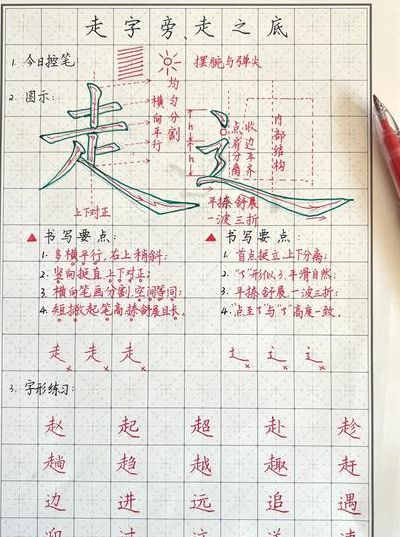 走字旁、走之底
1. 今日控笔:
摆腕与弹尖
2. 图示:
横向平行
均匀分割
上下对正
h
h
点着分离
收边平齐
内部结构
平捺舒展
一波三折
书写要点:
1. 多横平行,右上稍斜;
2. 竖向挺直上下对正;
3. 横向笔画分割,空间等同;
4. 短撇起笔高捺舒展且长。
书写要点:
1. 首点挺立,上下分离;
2. "3"形似3,平滑自然;
3. 平捺舒展一波三折;
4. "点至了"与"了"高度一致。
走 走 走
辶 辶 辶
3. 字形练习:
赵 起 超 赴 趁
趟 趋 越 趣 赶
边 进 远 追 遇
迎 过 这 送 速